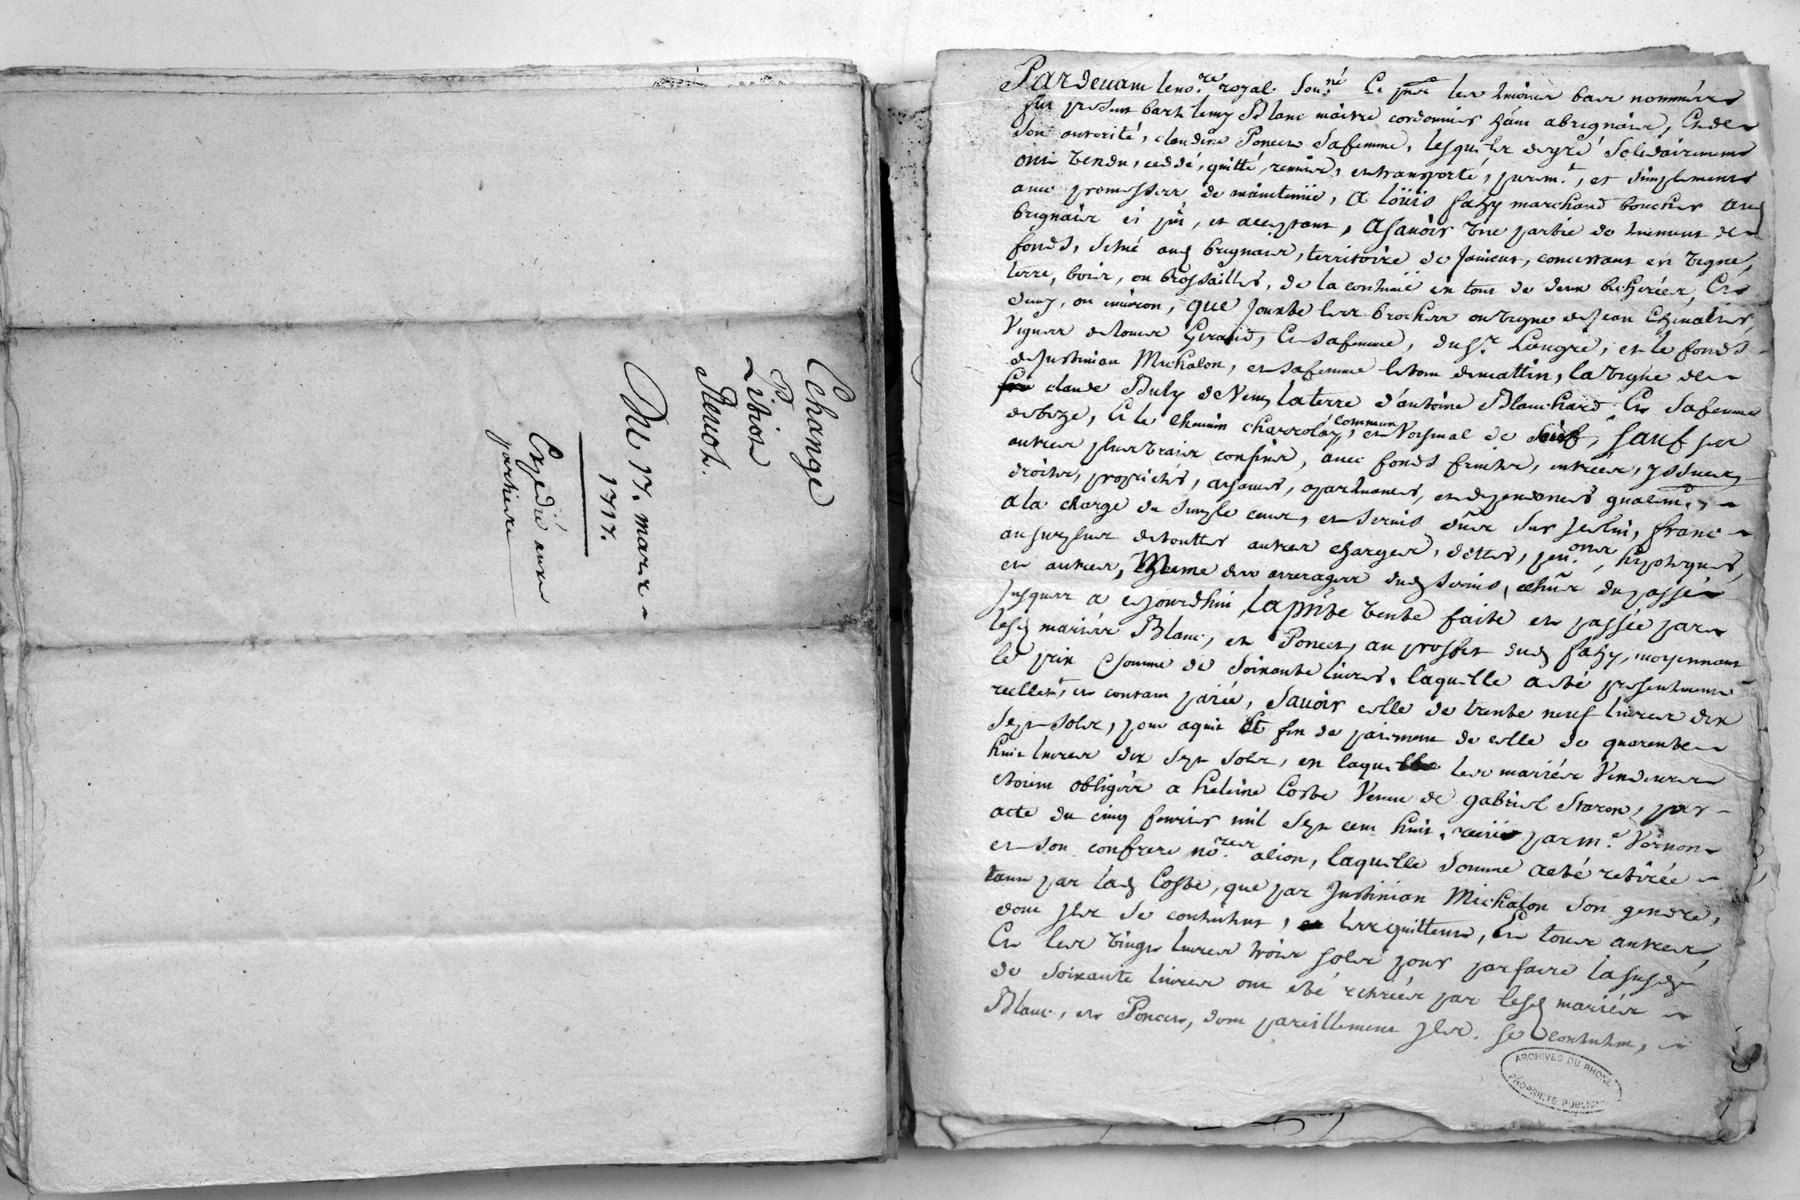 Echange
Pr
Libiot
Renot.
Du 17. mars
1717.
Expedié aux
parties
Pardevant le no.re royal sou.né Et p̃nt les témoins bas nommés
fut present barthelemy Blanc maitre cordonnier hānt abrignais, Et de
son autorité, claudine Poncet Safemme, lesquels degré Solidairement
ont vendu, ceddé, quitté, remis, et transporté, purem.t, et Simplement
avec promesse de maintenüe, a loüis fahy marchand boucher aud
brignais ci p̃nt, et acceptant, Asavoir vne partie de tenement de
fond, situé aud brignais, territoire de Janicu, concistant en vigne,
terre, bois, ou brossailles, de la contenüe en tout de deux bicherées, Et
demy, ou environ, que Jouxte les brosses ou vigne de Jean Chevalier,
Vignes de louis Giraud, Et safemme, du S.r Longre, et le fond
de Justinian Michalon, et safemme de matin, la vigne de
claude Buly de Vent la terre d'antoine Blanchard, Et Safemme
de bize, Et le chemin charrolay commun, et Voisinal de Soir, Sauf ses
autres plus vrais confins, avec fond fruits, entrées, ysües
droits, proprietés, aysances, apartenances, et dependences quelcon.
a la charge du Simple cens, et Servis dûs Sur Iceluy, franc
au surplus de toutes autres charges, dettes, pen.ons, hypoteques,
et autres, Meme des arrerages dud Servis, echûs du passé
Jusques a cejourdhui, la p̃nte vente faite et passée par
lesd mariés Blanc, et Poncet, au proffit dud fahy, moyennant
le prix Et somme de Soixante livres, laquelle a eté presentement
reellem.t, et contant payée, Savoir celle de trente neuf livres dix
Sept sols, pour aquit Et fin de paiement de celle de quarente
huit livres dix Sept Sols, en laquelle les mariés Vendeurs
etoient obligés a heleine Coste Veuve de gabriel Staron, par
acte du cinq fevrier mil Sept cent huit, recüe par m.e Vernon
et son confrere no.res alion, laquelle Somme a eté retirée
tant par lad Coste, que par Justinian Michalon Son gendre,
dont Ils Se contentent, les quittent, Et tous autres,
Et les vingt livres trois Sols pour parfaire lasusd
de Soixante livres ont eté retirées par lesd mariés
Blanc, et Poncet, dont pareillement Ils Se contentent,
ARCHIVES DU RHONE
PROPRIETE PUBLIQUE